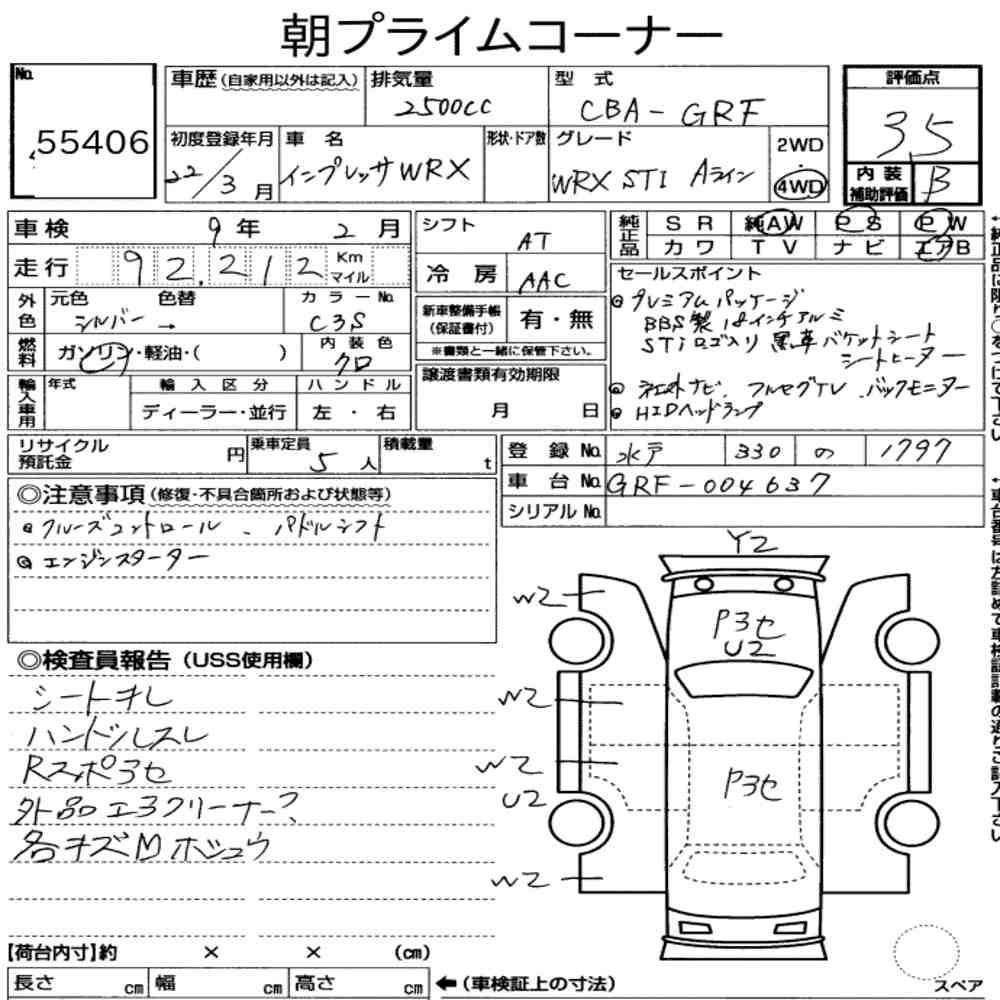 朝プライムコーナー
No.
55406
車歴(自家用以外は記入)
排気量
2500cc
型 式
CBA-GRF
評価点
3.5
初度登録年月
22/3月
車 名
インプレッサWRX
形状・ドア数
グレード
WRX STI Aライン
2WD
・
4WD
内 装
補助評価
B
車検 9年 2月
走行 92,212 Km マイル
シフト AT
冷 房 AAC
純正品
SR 純AW PS PW
カワ TV ナビ エアB
外色
元色 色替
シルバー →
カラーNo.
C3S
新車整備手帳
(保証書付)
有・無
※書類と一緒に保管下さい。
燃料
ガソリン・軽油・( )
内 装 色
クロ
セールスポイント
◎プレミアムパッケージ
BBS製18インチアルミ
STiロゴ入り 黒革バケットシート
シートヒーター
◎社外ナビ、フルセグTV、バックモニター
◎HIDヘッドランプ
輸入車用
年式
輸 入 区 分
ディーラー・並行
ハ ン ド ル
左 ・ 右
譲渡書類有効期限
月 日
リサイクル
預託金
円
乗車定員
5人
積載量
t
登 録 No. 水戸 330 の 1797
車 台 No. GRF-004637
シリアルNo.
◎注意事項(修復・不具合箇所および状態等)
◎クルーズコントロール、パドルシフト
◎エンジンスターター
◎検査員報告(USS使用欄)
シートキレ
ハンドルスレ
Rスポ3セ
外品エヲクリーナー?
各キズMホシュウ
Y2
W2
P3セ
U2
W2
W2
U2
P3セ
W2
【荷台内寸】約 × × (cm)
長さ cm 幅 cm 高さ cm
←(車検証上の寸法)
スペア